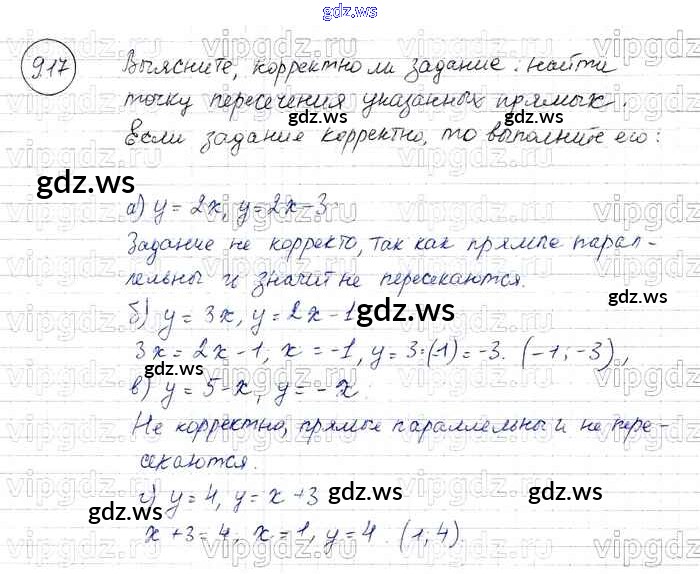 gdz.ws
917 Выясните, корректно ли задание: найти
точку пересечения указанных прямых.
gdz.ws
Если задание корректно, то выполните его:
gdz.ws
gdz.ws
а) y = 2x, y = 2x - 3
Задание не корректо, так как прямые парал-
лельны и значит не пересекаются.
gdz.ws
б) y = 3x, y = 2x - 1
gdz.ws
3x = 2x - 1; x = -1, y = 3·(-1) = -3. (-1; -3),
gdz.ws
в) y = 5 - x, y = -x.
Не корректно, прямые параллельны и не пере-
секаются.
gdz.ws
г) y = 4, y = x + 3
gdz.ws
gdz.ws
x + 3 = 4, x = 1, y = 4. (1; 4).